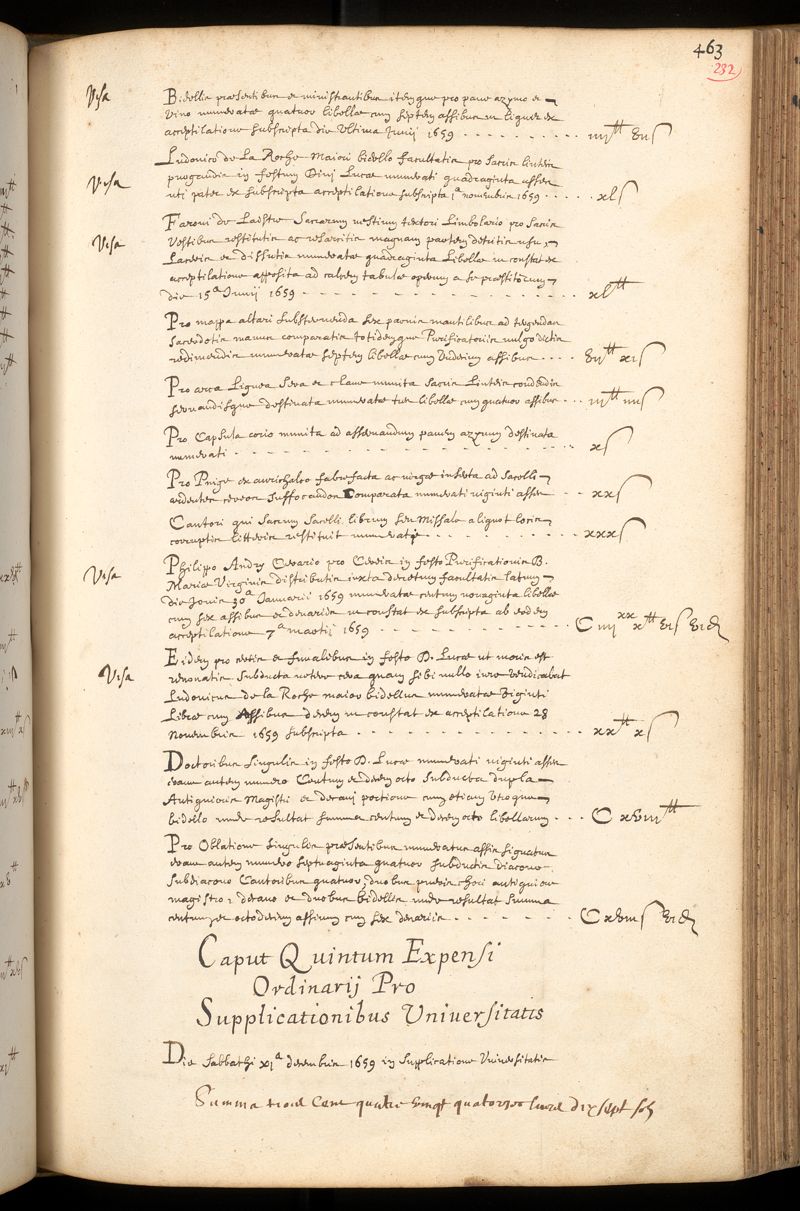 463
232
Visa
Bidellis praesentibus et ministrantibus itemque pro pane azymo et
vino numeratae quatuor libellae cum septem assibus ut liquet ex
acceptilatione subscripta die ultima Junij 1659 - - - - - - iiij₶ vii s
Visa
Ludovico de La Roche Maiori bidello facultatis pro sacris linteis
purgandis in festum Divi Lucae numerati quadraginta asses
uti patet ex subscripta acceptilatione subscripta 1ª novembris 1659 - - - xl s
Visa
Faroni de Laistre Sacrarum vestium textori Limbolario pro Sacris
Vestibus restitutis ac resarcitis magnam partem detritis usu,
Laceris et dissutis numeratae quadraginta Libellae ut constat ex
acceptilatione apposita ad calcem tabulae operum a se praestitorum
die 15ª Junij 1659 - - - - - - xl₶
Pro mappa altari substernenda sex parvis mantilibus ad tergendas
Sacerdotis manus comparatis totidemque Purificatoriis vulgo dictis
redimendis numeratae septem libellae cum undecim assibus - - - vii₶ xi s
Pro arca Lignea Sera et clave munita Sacris Linteis condendis
servandisque destinata numeratae tres libellae cum quatuor assibus - - - iii₶ iiii s
Pro Capsula corio munita ad asservandum panem azymum destinata
numerati - - - - - - x s
Pro Pnige ex aurichalco fabrefacta ac virgae inserta ad Sacelli
ardentes cereos suffocandos Comparata numerati viginti asses - - xx s
Cantori qui Sacrum Sacelli librum seu Missale aliquot locis
corruptis litteris restituit numerati - - - - - - xxx s
Visa
Philippo Andry Cerario pro Cereis in festo Purificationis B.
Mariae Virginis distributis iuxta decretum facultatis latum
die Jovis 30ª Januarii 1659 numeratae centum nonaginta libellae
cum sex assibus et denariis ut constat ex subscripta ab eodem
acceptilatione 7ª martij 1659 - - - - - - C iiij xx x₶ vi s vi d
Visa
Eidem pro cereis et funalibus in festo D. Lucae ut moris est
renovatis Subducta vetere cera quam sibi nullo iure vendicabat
Ludovicus de la Roche maior bidellus numeratae viginti
Librae cum Assibus decem ut constat ex acceptilatione 28
Novembris 1659 subscripta - - - - - - xx₶ x s
Doctoribus singulis in festo D. Lucae numerati viginti asses
erant autem numero Centum et decem octo subducta dupla
Antiquioris Magistri et decani portione cum etiam utroque
bidello unde resultat summa centum et decem octo libellarum - - - C xviii₶
Pro Oblatione singulis praesentibus numeratus assis signatus
erant autem numero septuaginta quatuor subductis diacono
Subdiacono Cantoribus quatuor, duobus pueris chori antiquiore
magistro, decano et duobus bidellis unde resultat Summa
centum et octodecim assium cum sex denariis - - - - - - C xviii s vi d
Caput Quintum Expensi
Ordinarij Pro
Supplicationibus Universitatis
Die Sabbathi xiª decembris 1659 in Supplicatione Universitatis
Summa trois Cent quatre vingt quatorze livres dix sept sols